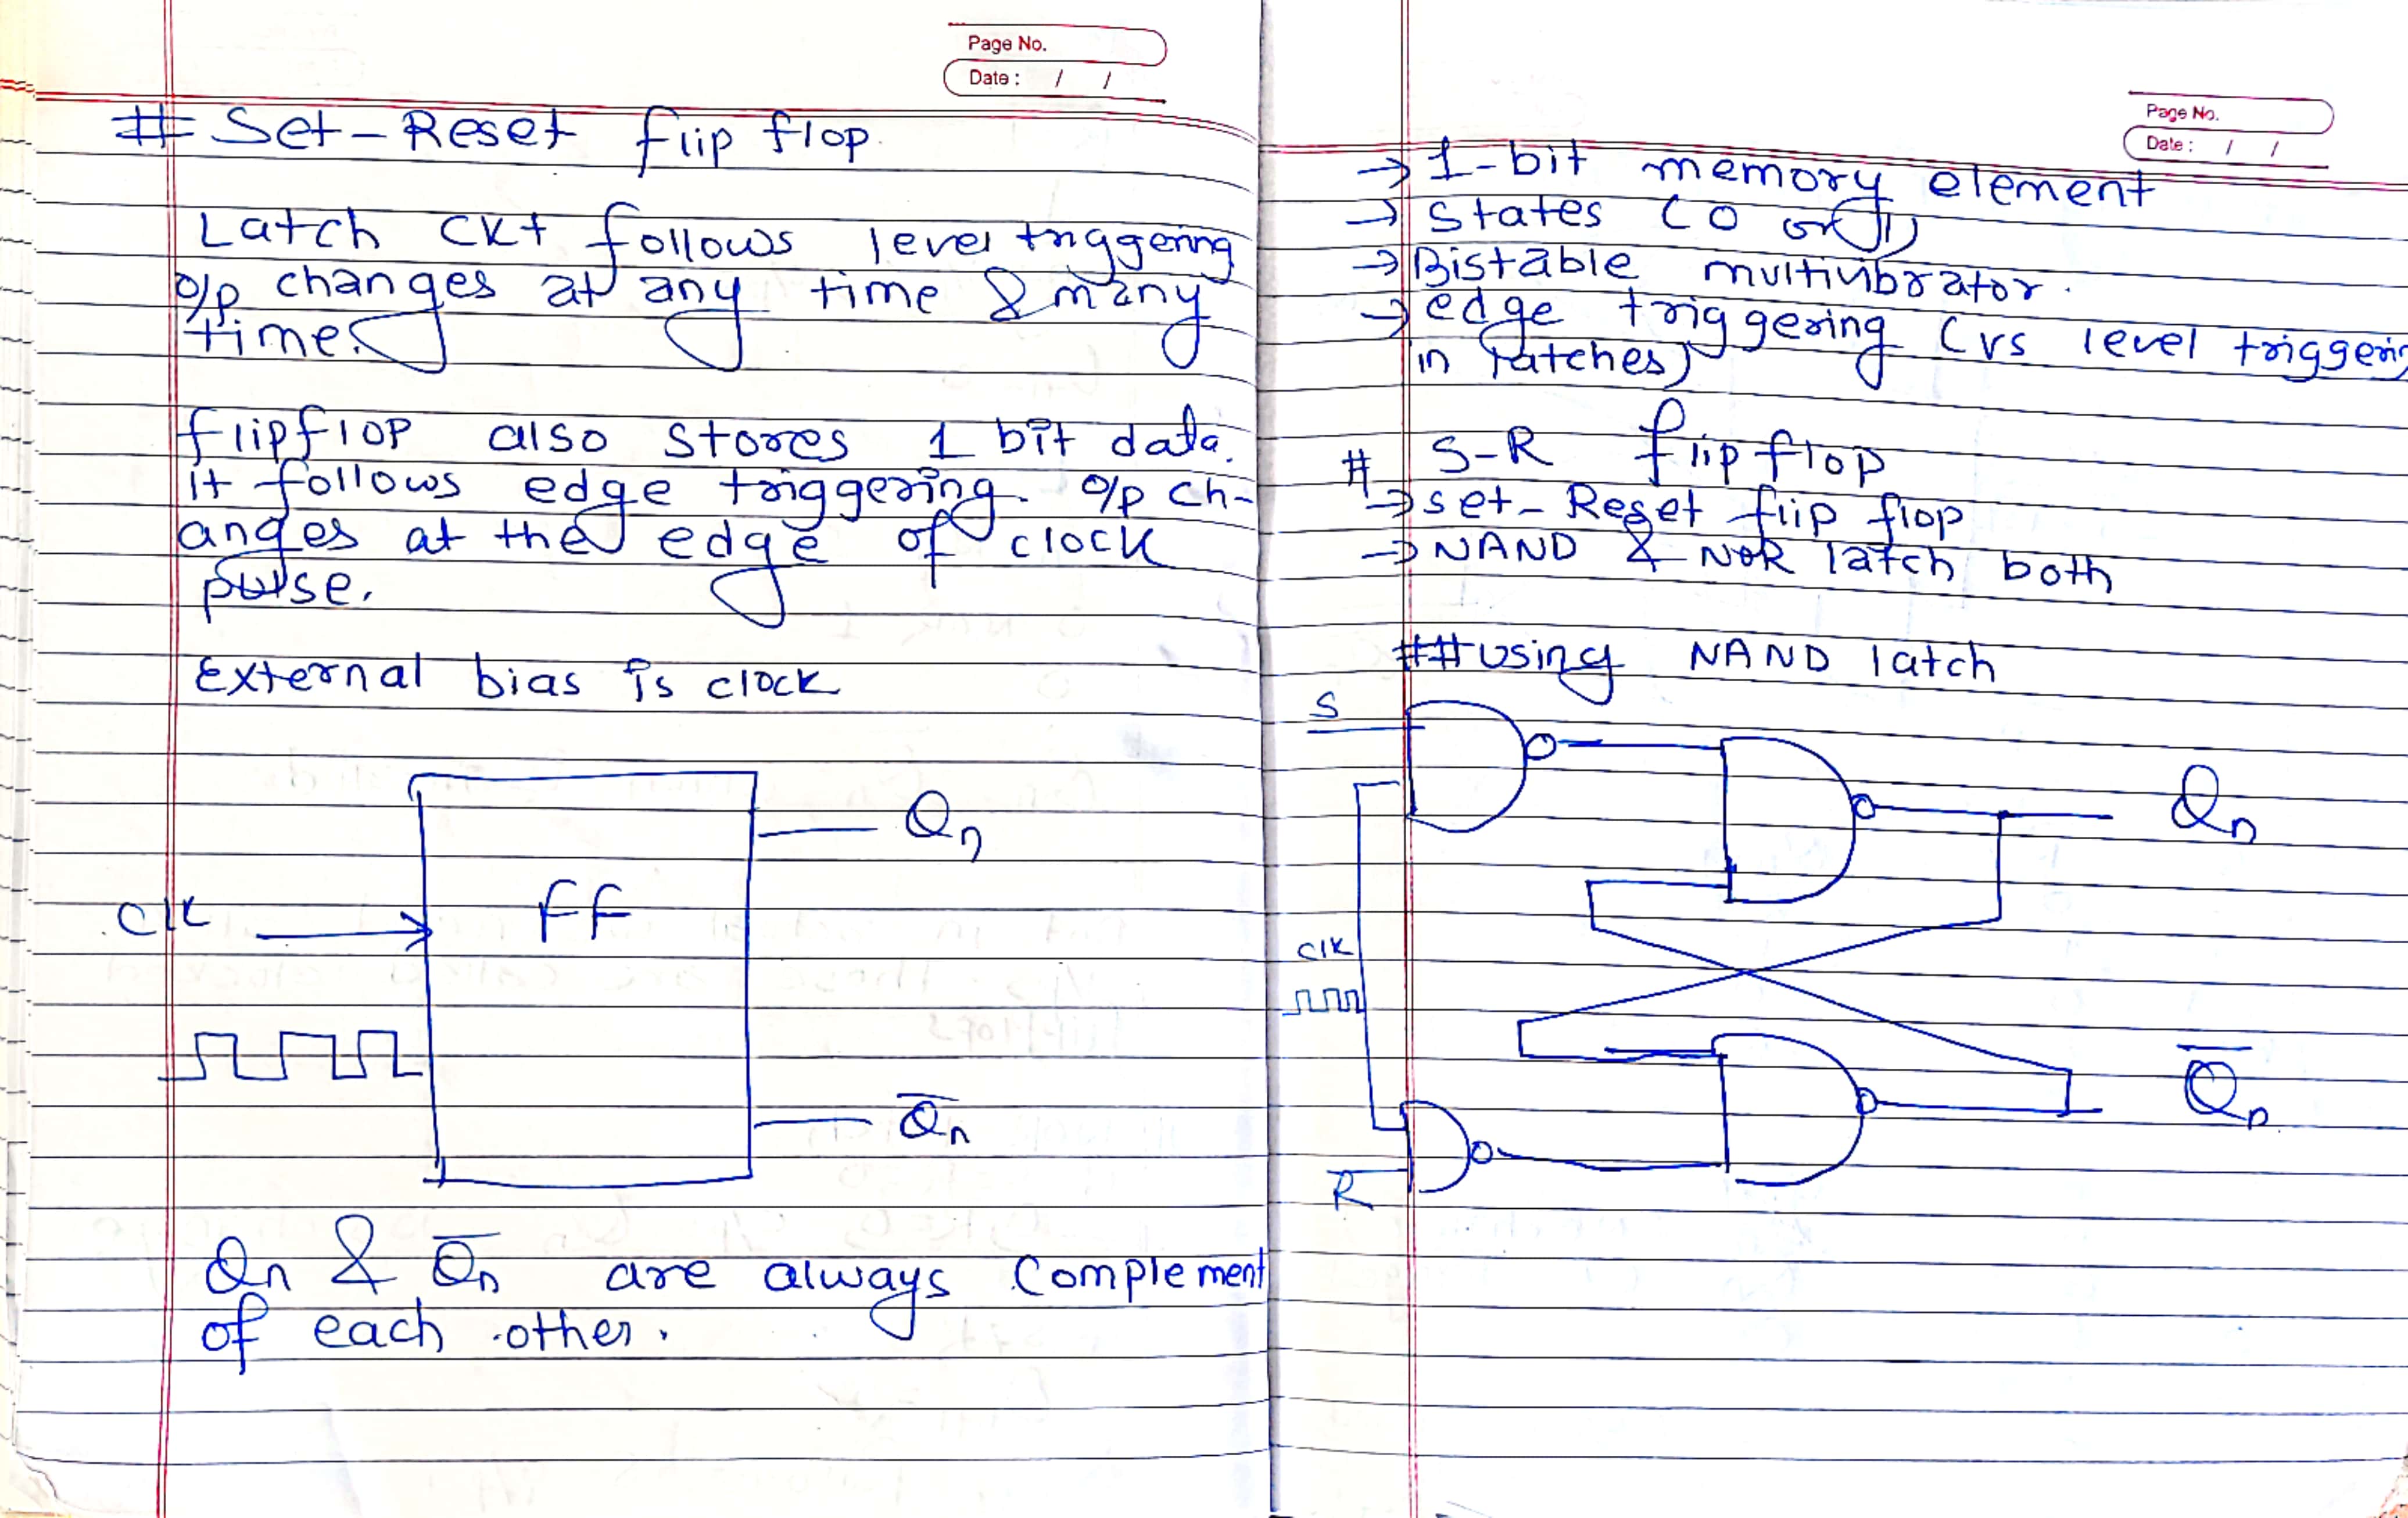 Page No.
Date : / /
# Set-Reset flip flop.
Latch ckt follows level triggering
o/p changes at any time & many
time.
flipflop also stores 1 bit data.
it follows edge triggering. o/p ch-
anges at the edge of clock
pulse.
External bias is clock
Qn
clk
FF
Q̅n
Qn & Q̅n are always complement
of each other.
Page No.
Date : / /
→ 1-bit memory element
→ states (0 or 1)
→ Bistable multivibrator.
→ edge triggering (vs level triggering
in latches)
# S-R flip flop
→ set-Reset flip flop
→ NAND & NOR latch both
## using NAND latch
S
Qn
clk
Q̅n
R